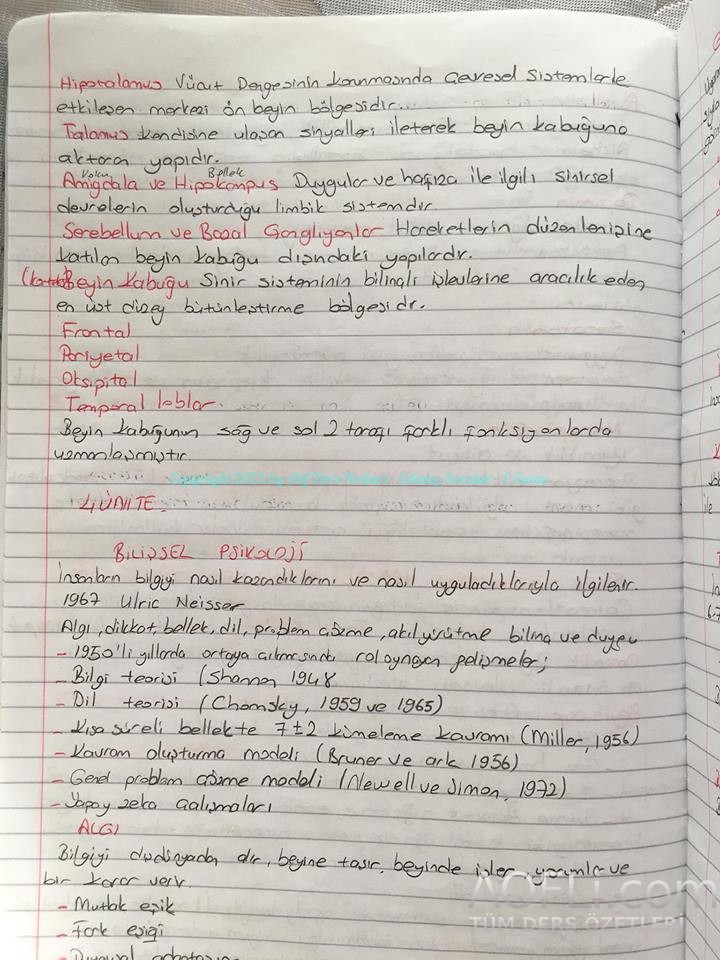 Hipotalamus Vücut Dengesinin korunmasında Çevresel Sistemlerle
etkileşen merkezi ön beyin bölgesidir.
Talamus kendisine ulaşan sinyalleri ileterek beyin kabuğuna
aktaran yapıdır.
Bellek
Amigdala ve Hipokampus Duygular ve hafıza ile ilgili sinirsel
devrelerin oluşturduğu limbik sistemdir
Serebellum ve Bazal Gangliyonlar Hareketlerin düzenlenişine
katılan beyin kabuğu dışındaki yapılardır.
Beyin Kabuğu Sinir sisteminin bilinçli işlevlerine aracılık eden
en üst düzey bütünleştirme bölgesidir.
Frontal
Pariyetal
Oksipital
Temporal loblar.
Beyin kabuğunun sağ ve sol 2 tarafı farklı fonksiyonlarda
uzmanlaşmıştır.
4.ÜNİTE
BİLİŞSEL PSİKOLOJİ
İnsanların bilgiyi nasıl kazandıklarını ve nasıl uyguladıklarıyla ilgilenir.
1967 Ulric Neisser
Algı, dikkat, bellek, dil, problem çözme, akıl yürütme bilinç ve duygu
- 1950'li yıllarda ortaya çıkmasında rol oynayan gelişmeler;
- Bilgi teorisi (Shannon 1948
- Dil teorisi (Chomsky, 1959 ve 1965)
- Kısa süreli bellekte 7±2 kümeleme kavramı (Miller, 1956)
- Kavram oluşturma modeli (Bruner ve ark 1956)
- Genel problem çözme modeli (Newell ve Simon, 1972)
- Yapay zeka çalışmaları
ALGI
Bilgiyi dış dünyadan alır, beyine taşır, beyinde işler, yorumlar ve
bir karar verir.
- Mutlak eşik
- Fark eşiği
- Duyusal adaptasyon
AOFLi.com
TÜM DERS ÖZETLERİ